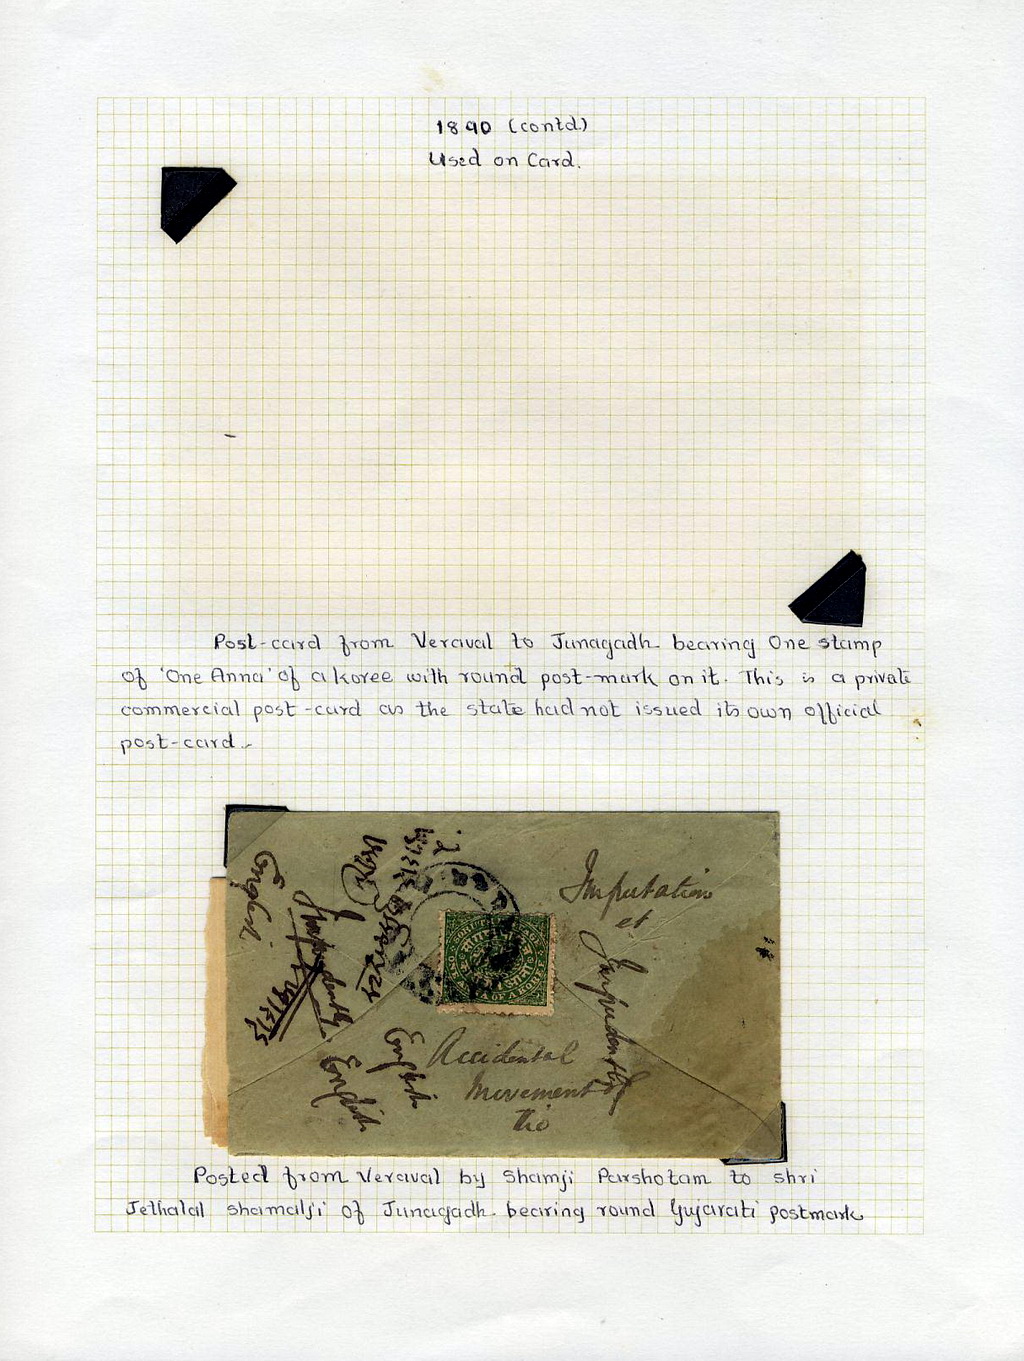 1890 (contd)
Used on Card.
Post-card from Veraval to Junagadh bearing One stamp
of 'One Anna' of a koree with round post-mark on it. This is a private
commercial post-card as the state had not issued its own official
post-card.
Imputation
et
Impudently
English
Impudently
English
English
Accidental
Movement
tio
ANNA OF A KOREE
Posted from Veraval by Shamji Parshotam to shri
Jethalal shamalji of Junagadh bearing round Gujarati postmark